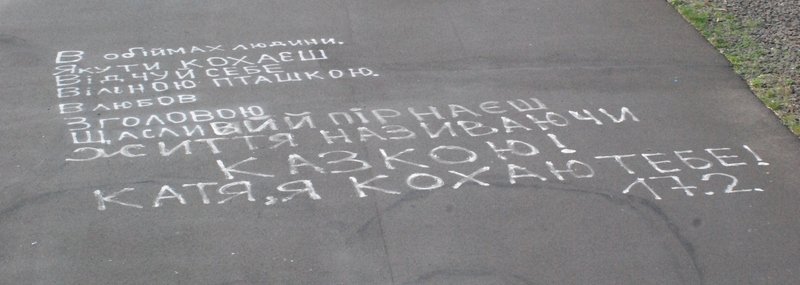 В обіймах людини.
Яку ти кохаєш
Відчуй себе
Вільною пташкою.
В любов
З головою
Щасливий пірнаєш
Життя називаючи
Казкою!
Катя, я кохаю тебе!
17.2.